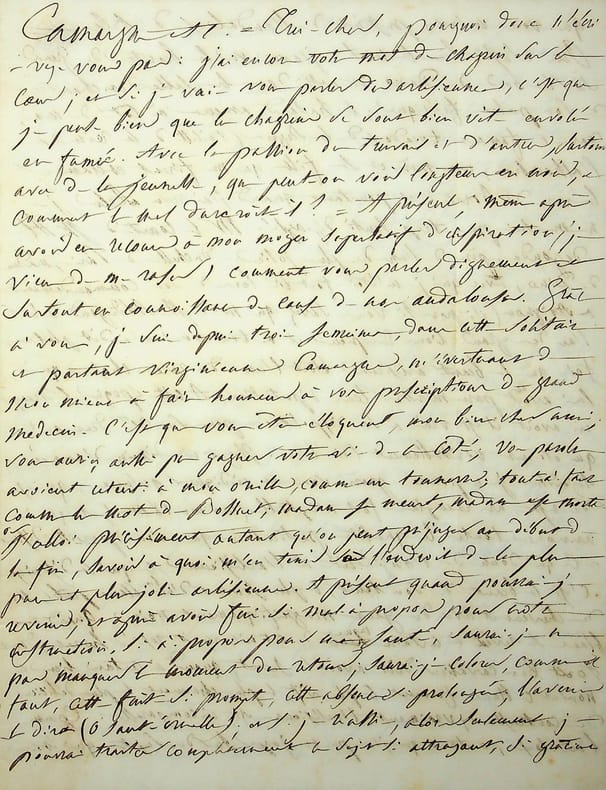 Camargue ... = Très cher, pourquoi donc n'écri-
-vez vous pas: j'ai encor votre mot de chagrin sur le
cœur; et si j vais vous parler des artésiennes, c'est que
j- pense bien que le chagrin se sont bien vite envolé
en fumée. Avec la passion du travail et d'autres, surtout
avec d- la jeunesse, que peut-on voir longtems en noir, et
comment le mal dureroit-il? = A présent même après
avoir eu recours à mon moyen superlatif d'inspiration, j-
viens d- m- raser) comment vous parler dignement et
surtout en connoissance de cause de nos andalouses. Grâce
à vous, j- suis depuis trois semaines, dans cette solitaire
et partant virginienne Camargue, m'évertuant d-
mon mieux à faire honneur à vos prescriptions d- grand
médecin. C'est que vous êtes éloquent, mon bien cher ami,
vous auriez aussi pu gagner votre vie d- ce côté; vos paroles
avoient retenti à mon oreille, comme un tonnerre; tout à fait
comme le mot d- Bossuet; madame se meurt, madame est morte
précisément autant qu'on peut préjuger au début d-
la fin, savoir à quoi m'en tenir sur l'endroit d- la plus
pure et plus jolie artésienne. A présent quand pourrai-j-
revenir, et après avoir fui si mal à propos pour votre
instruction, si à propos pour ma santé, saurai-j- n-
pas manquer le moment du retour: saurai-j- colorer, comme il
faut, cette fuite si prompte, cette absence si prolongée, l'avenir
le dira (ô santé cruelle): et si j- réussis, alors seulement j-
pourrai traiter complètement un sujet si attrayant, si gracieux